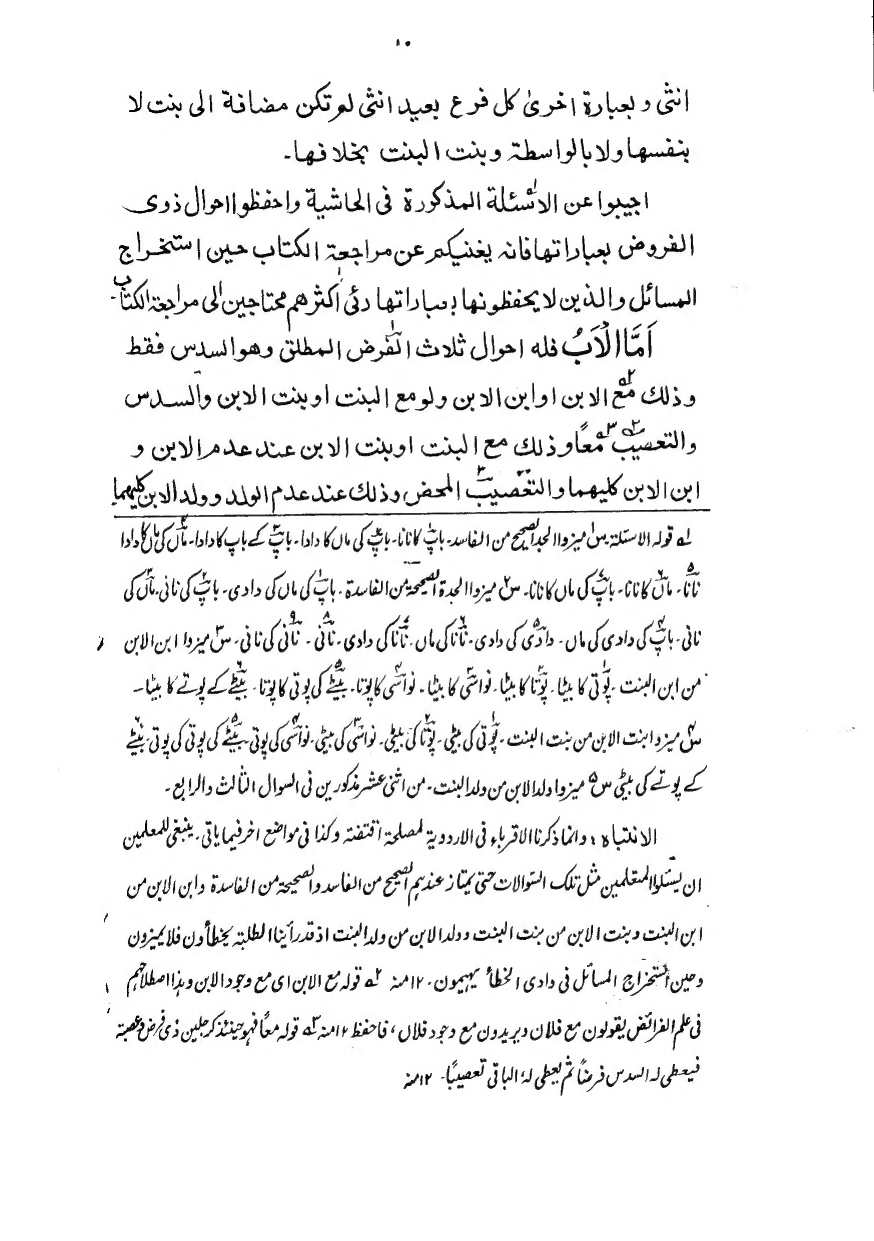 ١٠
انثى وبعبارة اخرىٰ كل فرع بعيد انثى لم تكن مضافة الى بنت لا
بنفسها ولا بالواسطة وبنت البنت بخلافها۔
اجيبوا عن الاسئلة المذكورة فى الحاشية واحفظوا احوال ذوى
الفروض بعباراتها فانه يغنيكم عن مراجعة الكتاب حين استخراج
المسائل والذين لا يحفظونها بعباراتها رئى اكثرهم محتاجين الى مراجعة الكتاب۔
اَمَّا الْاَبُ فله احوال ثلاث الفرض المطلق وهو السدس فقط
وذلك مع الابن او ابن الابن ولو مع البنت او بنت الابن والسدس
والتعصيب معًا وذلك مع البنت او بنت الابن عند عدم الابن و
ابن الابن كليهما والتعصيب المحض وذلك عند عدم الولد وولد الابن كليهما
لہ قولہ الاسئلة س۱ ميزوا الجد الصحيح من الفاسد۔ باپ کا نانا۔ باپ کی ماں کا دادا۔ باپ کے باپ کا دادا۔ ماں کی ماں کا دادا
نانا۔ ماں کا نانا۔ باپ کی ماں کا نانا۔ س۲ ميزوا الجدة الصحيحة من الفاسدة۔ باپ کی ماں کی دادی۔ باپ کی نانی۔ ماں کی
نانی۔ باپ کی دادی کی ماں۔ دادی کی دادی۔ نانا کی ماں۔ نانا کی دادی۔ نانی۔ نانی کی نانی۔ س۳ ميزوا ابن الابن
من ابن البنت ۔ پوتی کا بیٹا۔ پوتا کا بیٹا۔ نواسی کا بیٹا۔ نواسی کا پوتا۔ بیٹے کی پوتی کا پوتا۔ بیٹے کے پوتے کا بیٹا۔
س۴ ميزوا بنت الابن من بنت البنت۔ پوتی کی بیٹی۔ پوتا کی بیٹی۔ نواسی کی بیٹی۔ نواسی کی پوتی۔ بیٹے کی پوتی کی پوتی۔ بیٹے
کے پوتے کی بیٹی س۵ ميزوا ولد الابن من ولد البنت۔ من اثنى عشر مذكورين فى السوال الثالث والرابع۔
الانتباه : وانما ذكرنا الاقرباء فى الاردوية لمصلحة اقتضتہ وكذا فى مواضع اخر فيما ياتى۔ ينبغى للمعلمين
ان يسئلوا المتعلمين مثل تلك السوالات حتى يمتاز عندهم الصحيح من الفاسد والصحيحة من الفاسدة وابن الابن من
ابن البنت وبنت الابن من بنت البنت وولد الابن من ولد البنت اذ قد رأينا الطلبة يخطأون فلا يميزون
وحين استخراج المسائل فى وادى الخطأ يهيمون۔ ١٢ منہ ٢ہ قولہ مع الابن اى مع وجود الابن وهذا اصطلاحهم
فى علم الفرائض يقولون مع فلان ويريدون مع وجود فلان، فاحفظ ١٢ منہ ٣ہ قولہ معًا فهو حينئذ كرجلين ذى فرض وعصبة
فيعطى لہ السدس فرضًا ثم يعطى لہ الباقى تعصيبًا۔ ١٢ منہ